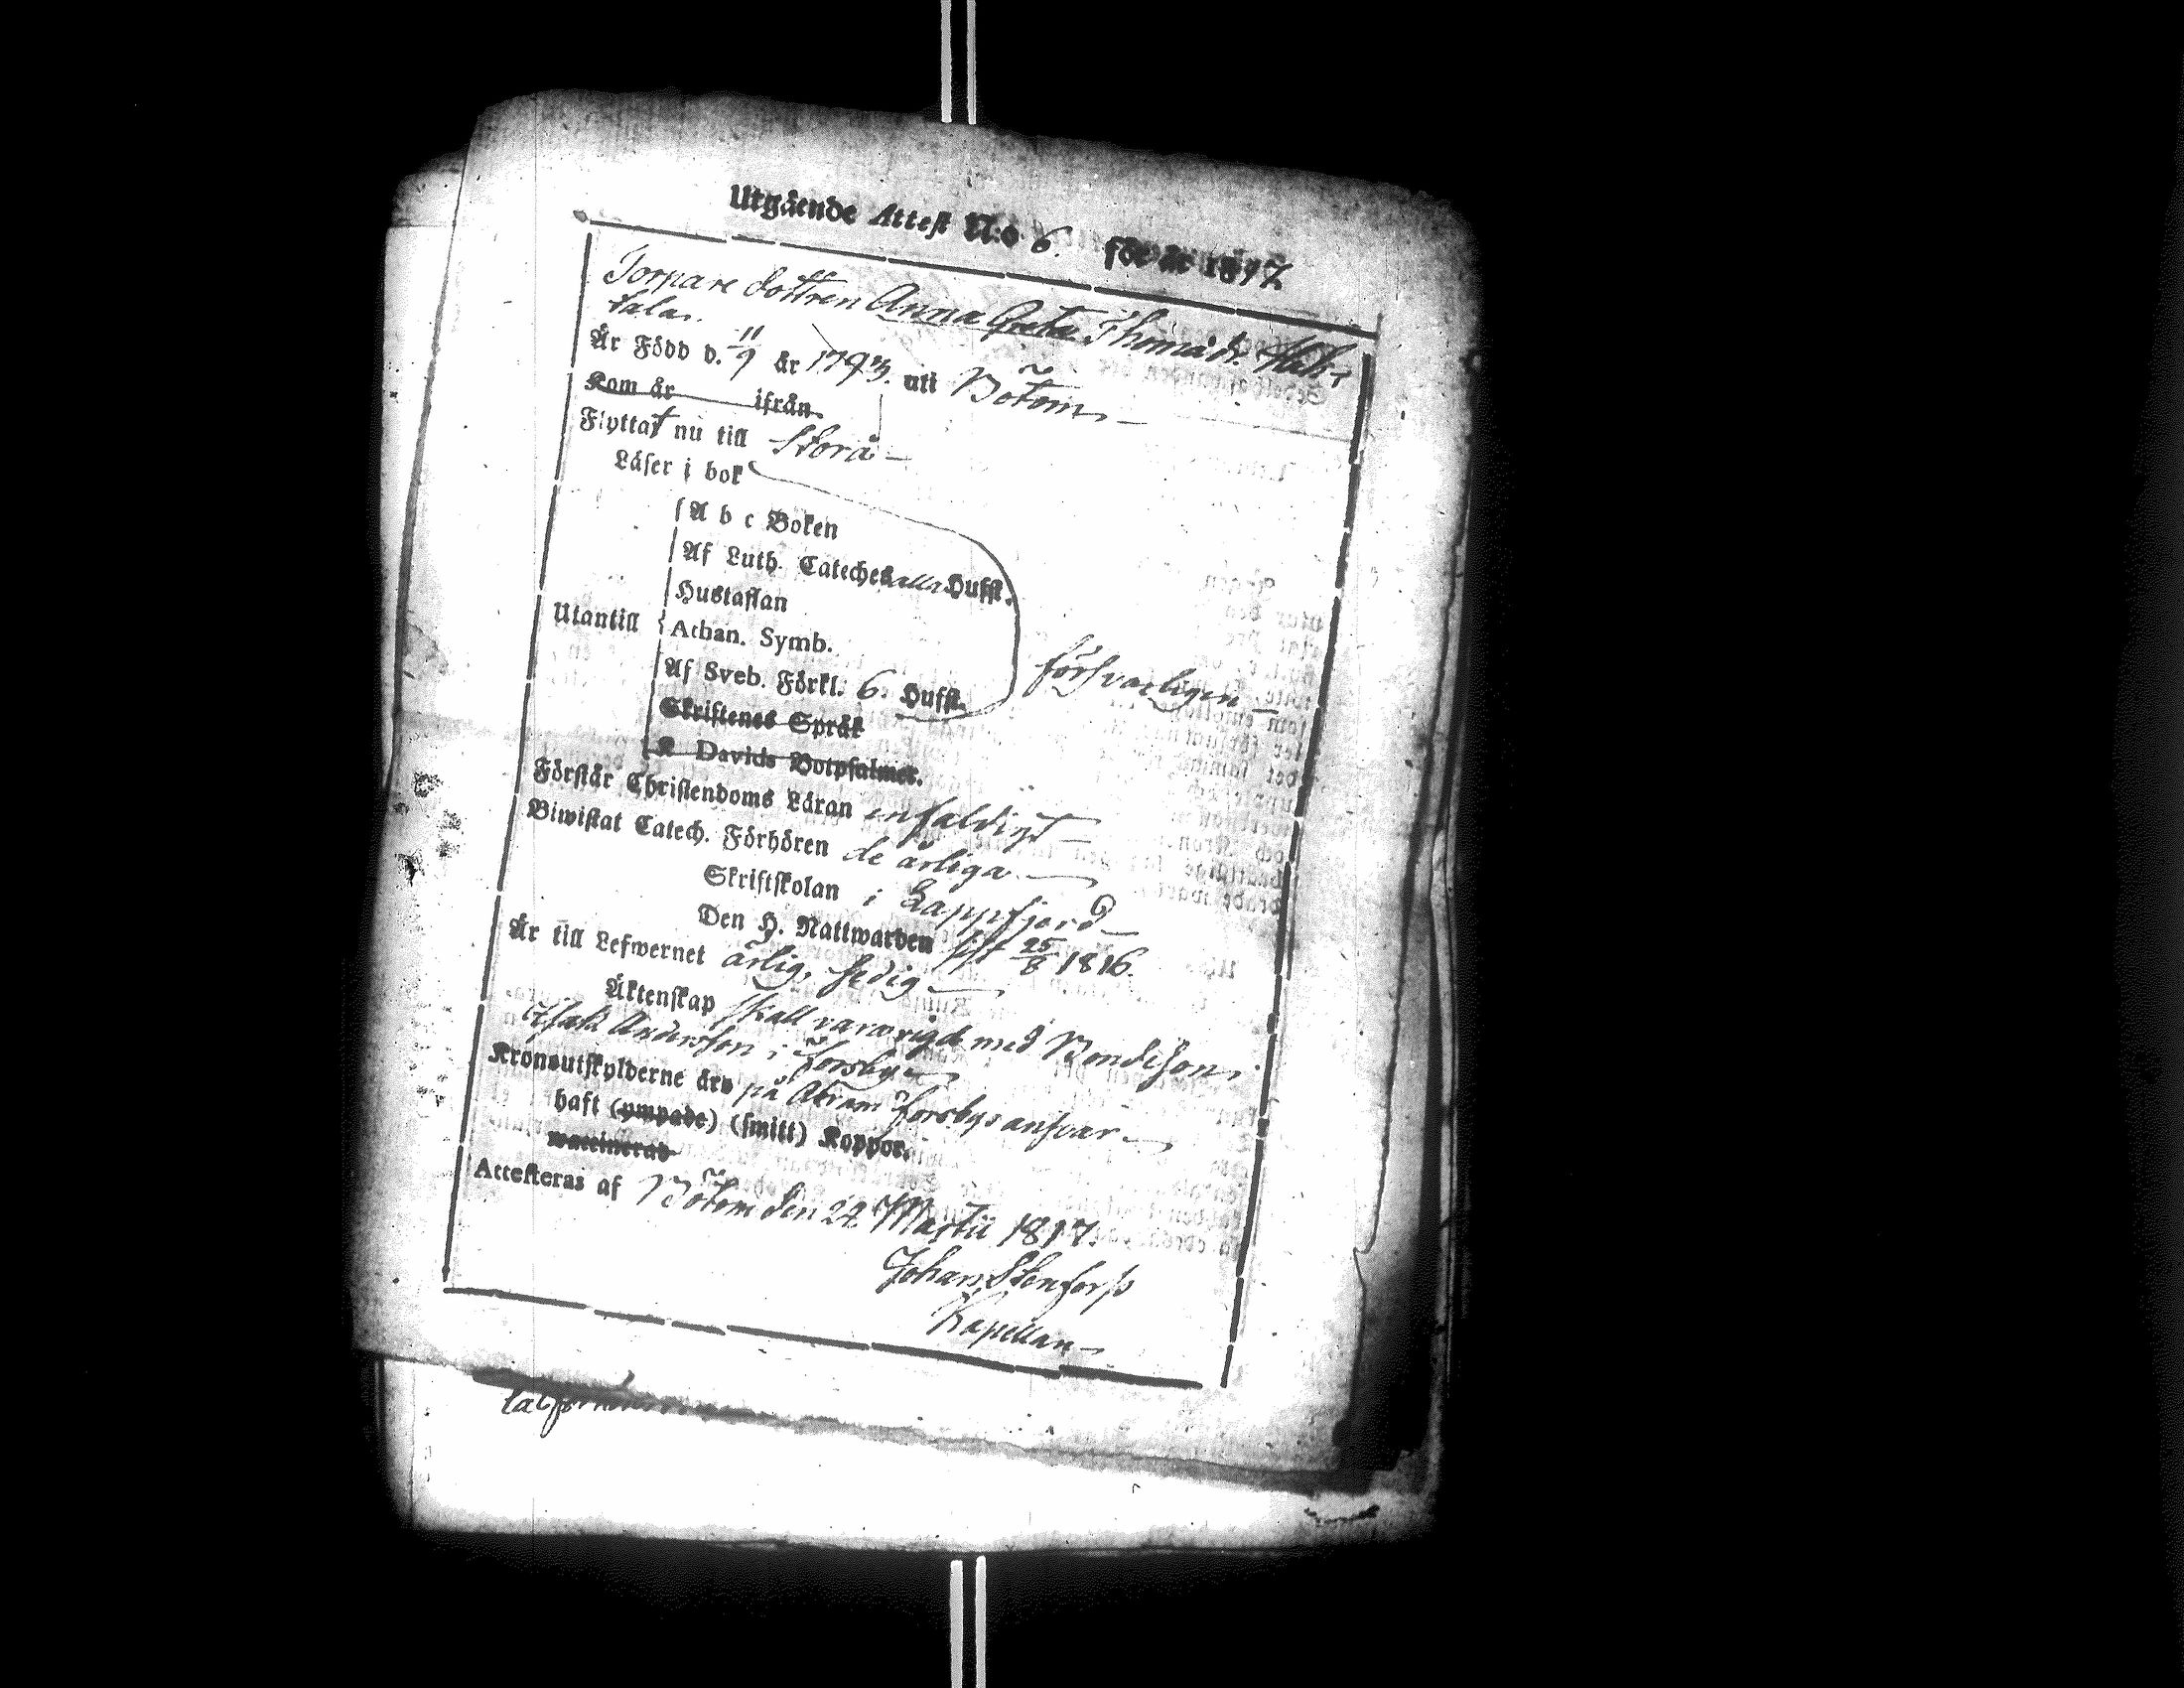 Utgående Attest N:o 6. för år 1817.
Torpare dottren Anna Greta Thomædr. Hak-
tala.
Är Född d. 11/9 år 1793. uti Bötom
Kom år ifrån
Flyttat nu till Storå
Läser i bok
A b c Boken
Af Luth. Cateches alla Hufst.
Hustaflan
Utantill
Athan. Symb.
försvarligen
Af Sveb. Förkl. 6. Hufst.
Skriftenes Språk
K Davids Botpsalmer.
Förstår Christendoms Läran enfaldigt
Biwistat Catech. Förhören de årliga
Skriftskolan i Lappfjerd
Den H. Nattwarden sist 25/8 1816.
Är till Lefwernet ärlig, sedig
Äktenskap skall vara ingå med Bondeson
Isak Andersson i Forsby
Kronoutskylderne äro på Abram Forsbys ansvar
haft (ympade) (smitt) Koppor.
waccinerad
Attesteras af Bötom den 22 Martii 1817.
Johan Stenfors
Kapellan